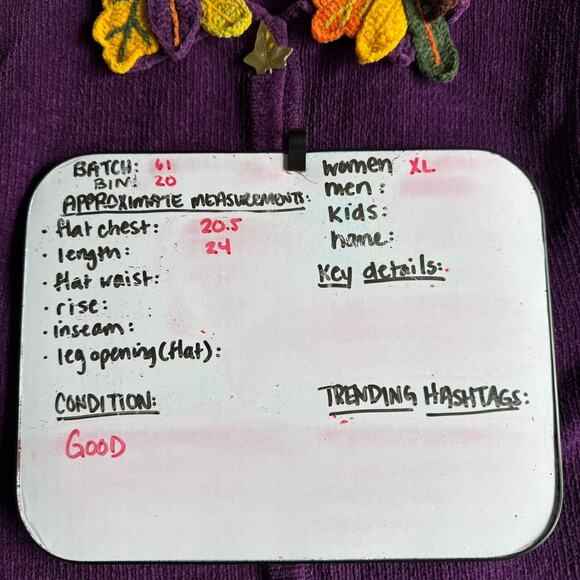 BATCH: 61
BIN: 20
APPROXIMATE MEASUREMENTS:
• flat chest: 20.5
• length: 24
• flat waist:
• rise:
• inseam:
• leg opening (flat):
CONDITION:
GOOD
women XL
men:
kids:
home:
Key details:
TRENDING HASHTAGS: